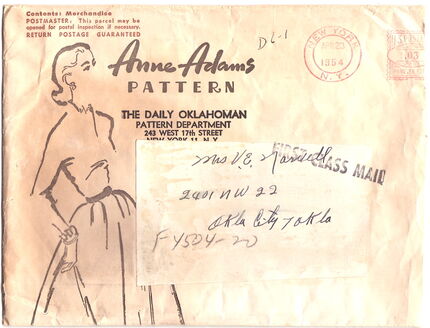 Contents: Merchandise
POSTMASTER. This parcel may be
opened for postal inspection if necessary.
RETURN POSTAGE GUARANTEED
DL-1
NEW YORK
APR 23
1954
N.Y.
.03
Anne Adams
PATTERN
THE DAILY OKLAHOMAN
PATTERN DEPARTMENT
243 WEST 17th STREET
NEW YORK 11, N.Y.
FIRST CLASS MAIL
Mrs V.E.
2401 NW 22
Okla City, Okla
F 4504-20